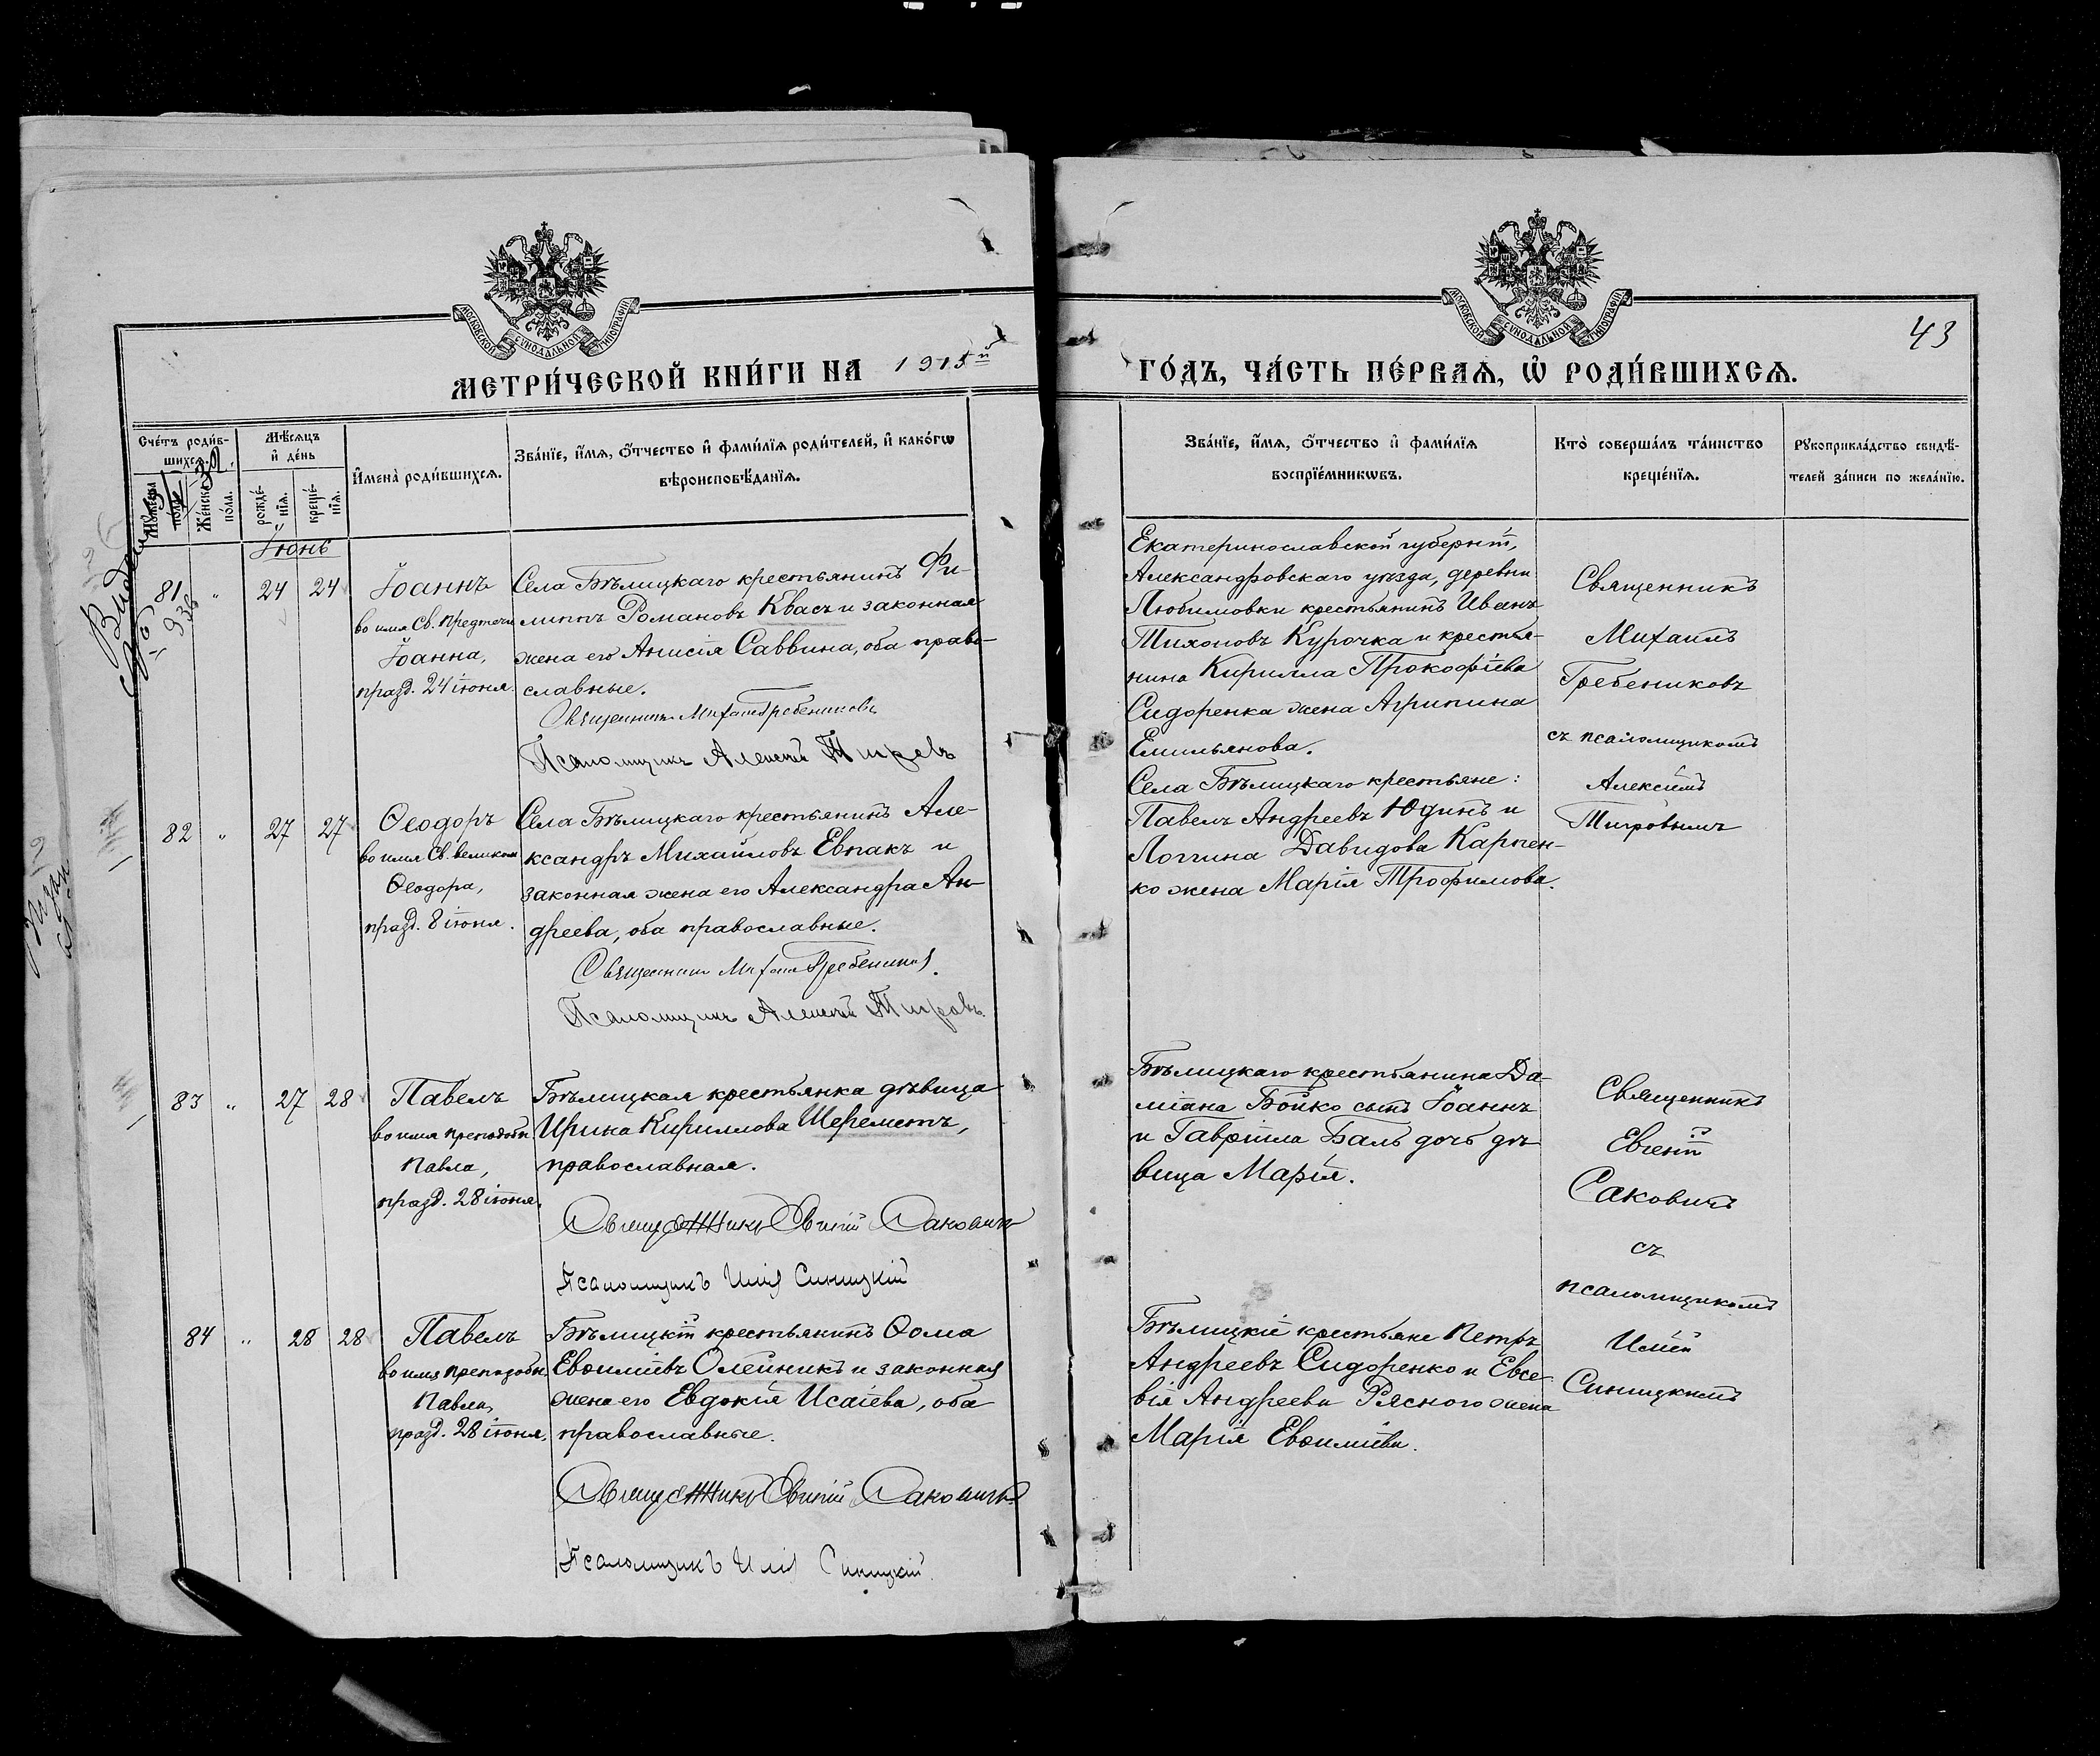 МОСКОВСКОЙ СѴНОДАЛЬНОЙ ТИПОГРАФІИ
МОСКОВСКОЙ СѴНОДАЛЬНОЙ ТИПОГРАФІИ
43
МЕТРИ́ЧЕСКОЙ КНИ́ГИ НА 1915й
ГО́ДЪ, ЧА́СТЬ ПЕ́РВАѦ, Ѡ҆ РОДИ́ВШИХСѦ.
Сче́тъ роди́в-
шихсѧ.
Мѣ́сѧцъ
и҆ де́нь
Му́жеска
по́ла.
Же́нска
по́ла.
рожде́-
нїѧ.
креще́-
нїѧ.
И҆мена̀ роди́вшихсѧ.
Зва́нїе, и҆́мѧ, ѻ҆́тчество и҆ фами́лїѧ роди́телей, и҆ како́гѡ
вѣроисповѣ́данїѧ.
Зва́нїе, и҆́мѧ, ѻ҆́тчество и҆ фами́лїѧ
воспрїе́мникѡвъ.
Кто̀ соверша́лъ та́инство
креще́нїѧ.
Рꙋкоприкла́дство свидѣ́-
телей за́писи по жела́нїю.
Іюнь
81 " 24 24
Іоаннъ
во имя Св. Предтечи
Іоанна,
празд. 24 іюня.
Села Бѣлицкаго крестьянинъ Фи-
липпъ Романовъ Квасъ и законная
жена его Анисія Саввина, оба право-
славные.
Священникъ Михаилъ Гребениковъ
Псаломщикъ Алексѣй Тигровъ
Екатеринославской губерніи,
Александровскаго уѣзда, деревни
Любимовки крестьянинъ Иванъ
Тихоновъ Курочка и крестья-
нина Кирилла Прокофіева
Сидоренка жена Агрипина
Емильянова.
Священникъ
Михаилъ
Гребениковъ
съ псаломщикомъ
Алексѣемъ
Тигровымъ
82 " 27 27
Ѳеодоръ
во имя Св. великом
Ѳеодора,
празд. 8 іюня.
Села Бѣлицкаго крестьянинъ Але-
ксандръ Михайловъ Евпакъ и
законная жена его Александра Ан-
дреева, оба православные.
Священникъ Михаилъ Гребениковъ.
Псаломщикъ Алексѣй Тигровъ.
Села Бѣлицкаго крестьяне:
Павелъ Андреевъ Юдинъ и
Логгина Давидова Карпен-
ко жена Марія Трофимова.
83 " 27 28
Павелъ
во имя преподобн
Павла,
празд. 28 іюня.
Бѣлицкая крестьянка дѣвица
Ирина Кириллова Шереметъ,
православная.
Священникъ Евгеній Саковичъ
Псаломщикъ Илія Синицкій
Бѣлицкаго крестьянина Да-
міана Бойко сынъ Іоаннъ
и Гавріила Баль дочь дѣ-
вица Марія.
Священникъ
Евгеній
Саковичъ
съ
псаломщикомъ
Иліей
Синицкимъ
84 " 28 28
Павелъ
во имя преподобн.
Павла,
празд. 28 іюня.
Бѣлицкій крестьянинъ Ѳома
Евѳиміевъ Олейникъ и законная
жена его Евдокія Исаіева, оба
православные.
Священникъ Евгеній Саковичъ
Псаломщикъ Илія Синицкій.
Бѣлицкіе крестьяне Петръ
Андреевъ Сидоренко и Евсе-
вія Андреева Рясного жена
Марія Евѳиміева.